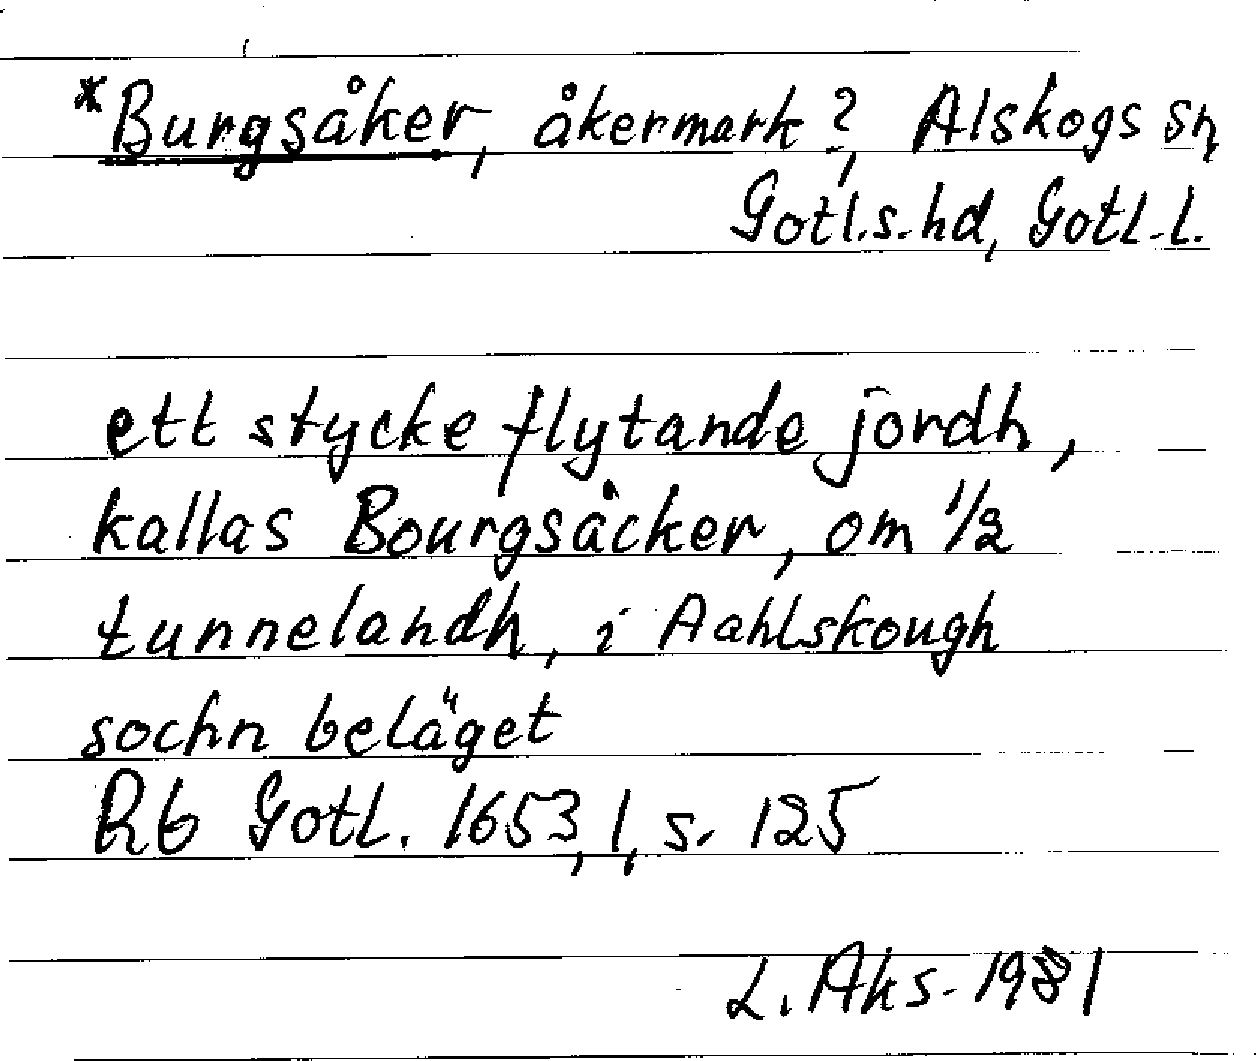 *Burgsåker, åkermark?, Alskogs sn,
Gotl.s.hd, Gotl.l.
ett stycke flytande jordh,
kallas Bourgsåcker, om 1/2
tunnelandh, i Aahlskough
sochn beläget
Rb Gotl. 1653, 1, s. 125
L. Aks. 1981